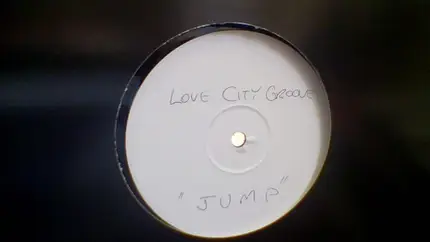 LOVE CITY GROOVE
"JUMP"